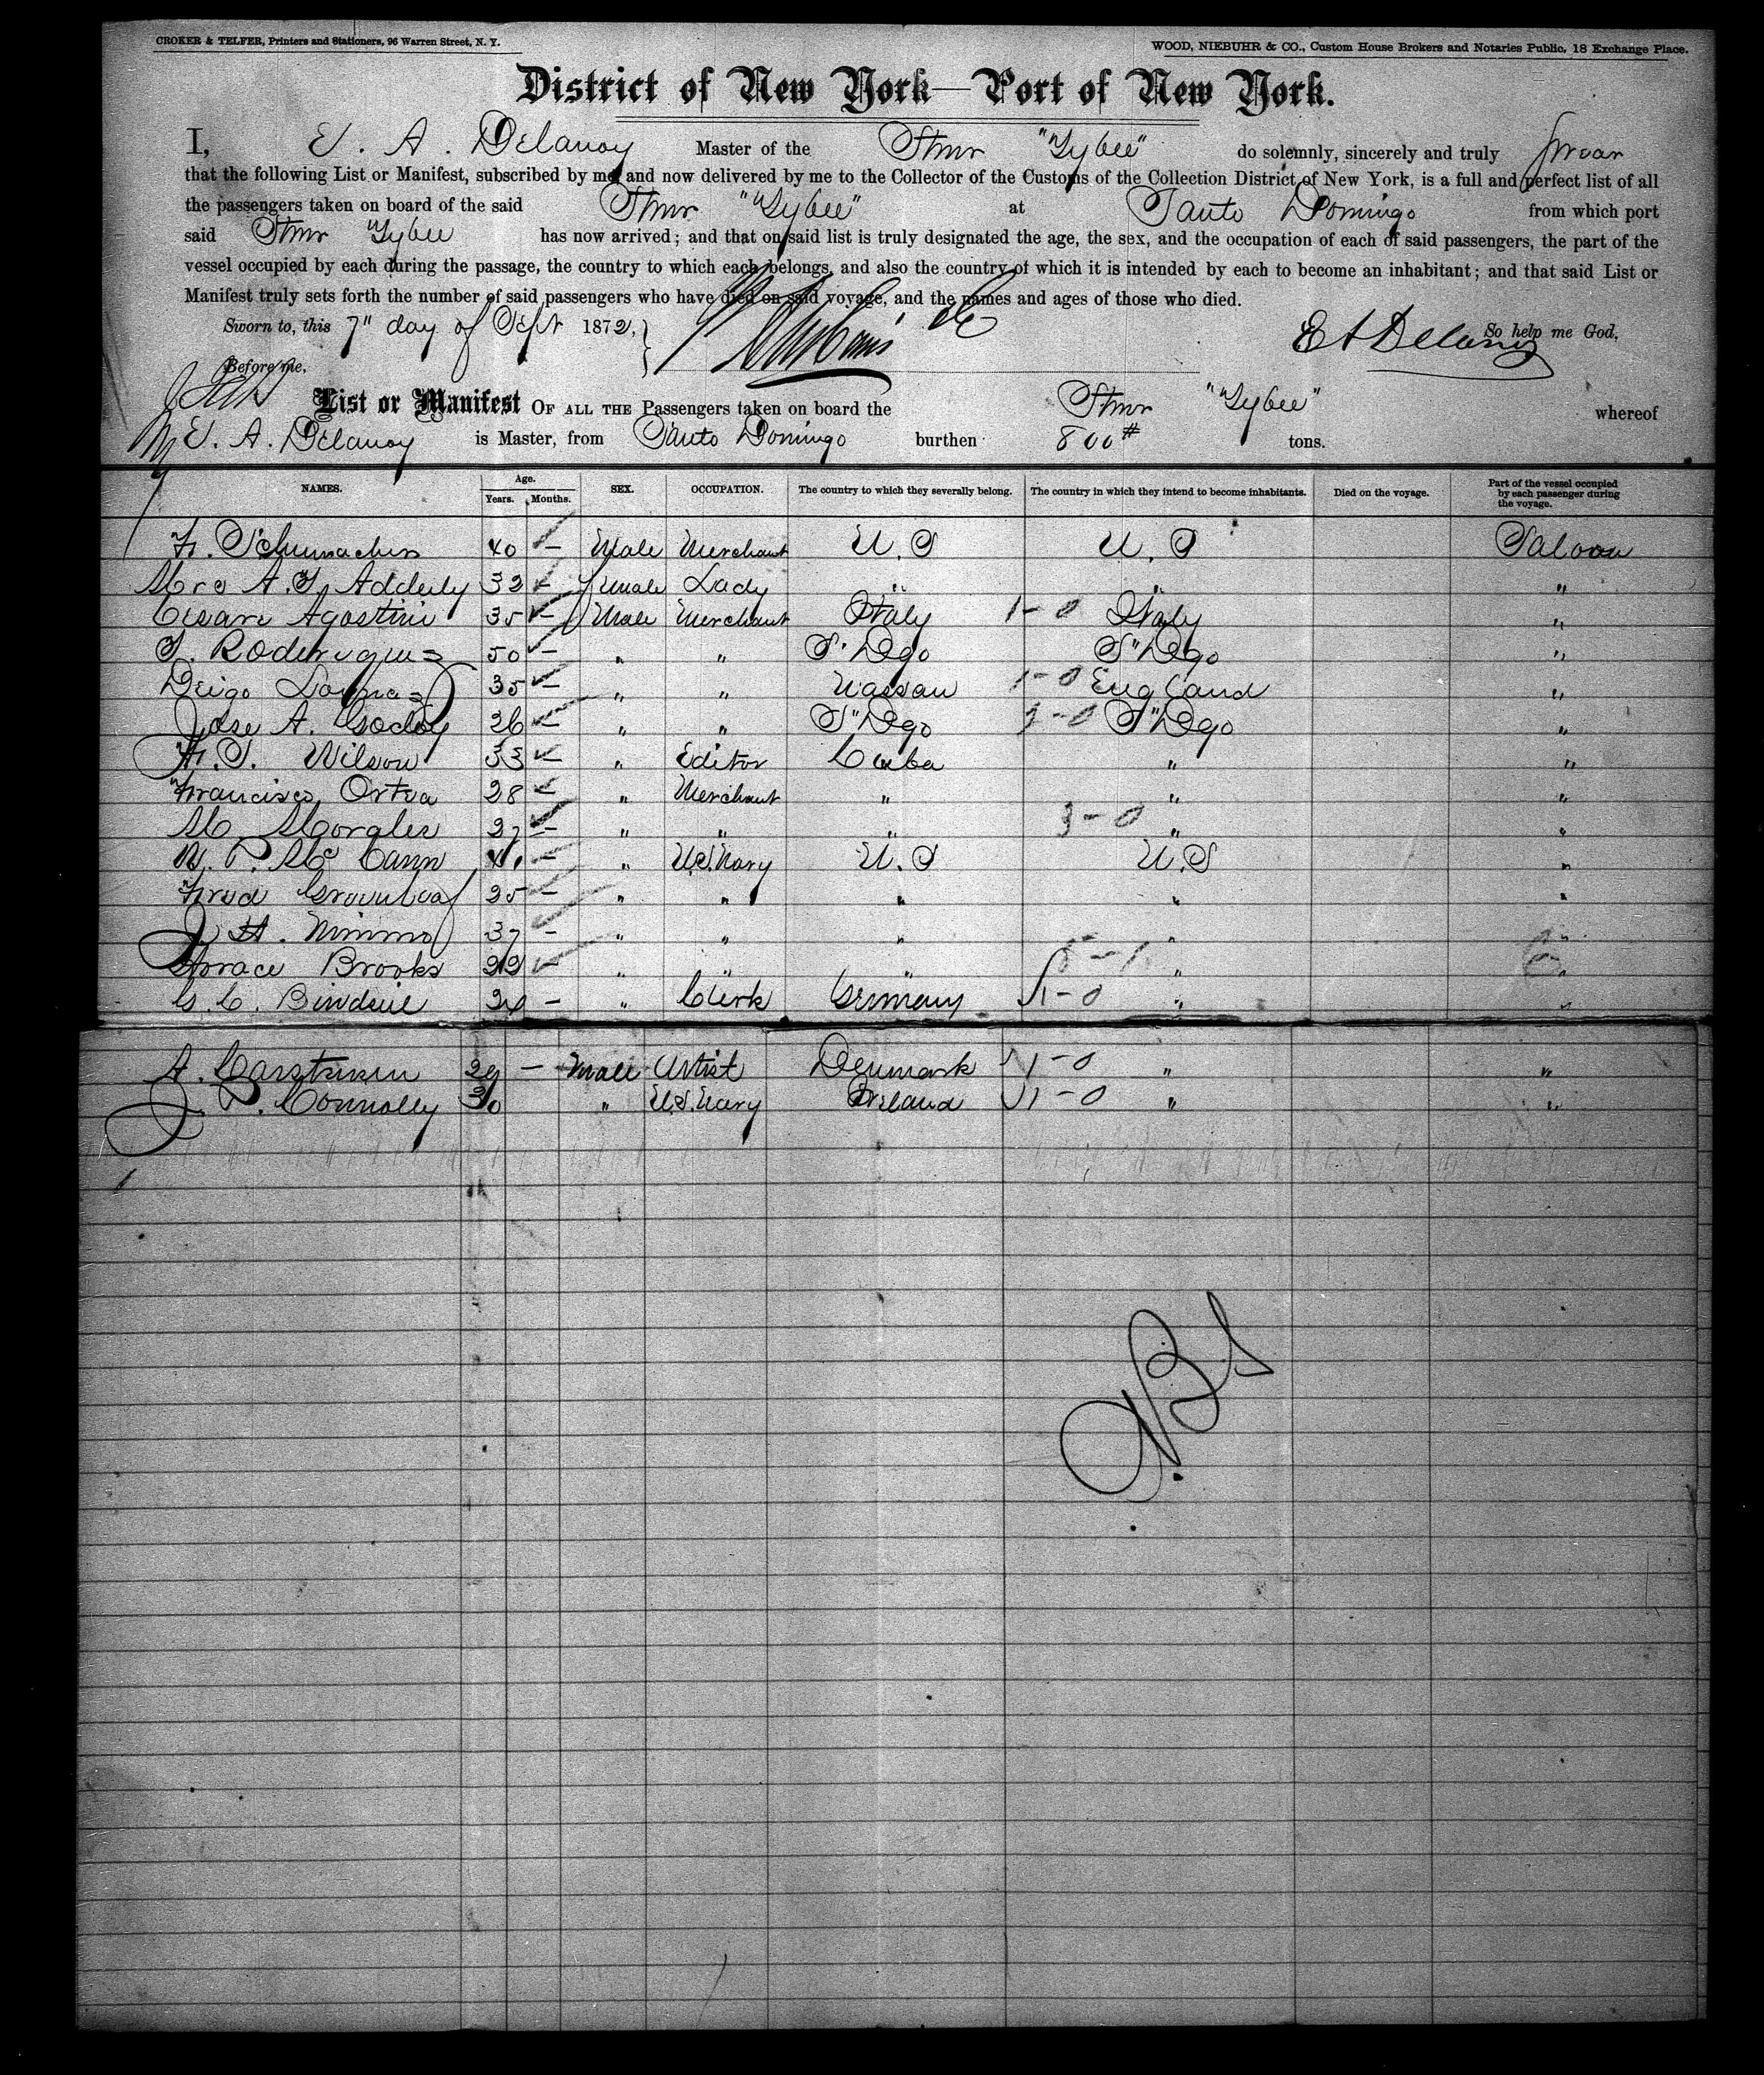 CROKER & TELFER, Printers and Stationers, 96 Warren Street, N. Y.
WOOD, NIEBUHR & CO., Custom House Brokers and Notaries Public, 18 Exchange Place.
District of New York—Port of New York.
I, E. A. Delanoy Master of the Stmr "Tybee" do solemnly, sincerely and truly swear
that the following List or Manifest, subscribed by me, and now delivered by me to the Collector of the Customs of the Collection District of New York, is a full and perfect list of all
the passengers taken on board of the said Stmr "Tybee" at Santo Domingo from which port
said Stmr Tybee has now arrived; and that on said list is truly designated the age, the sex, and the occupation of each of said passengers, the part of the
vessel occupied by each during the passage, the country to which each belongs, and also the country of which it is intended by each to become an inhabitant; and that said List or
Manifest truly sets forth the number of said passengers who have died on said voyage, and the names and ages of those who died.
Sworn to, this 7" day of Sept 1872, So help me God,
E A Delanoy
Before me,
List or Manifest OF ALL THE Passengers taken on board the Stmr "Tybee" whereof
E. A. Delanoy is Master, from Santo Domingo burthen 800 # tons.
NAMES. Age. Years. Months. SEX. OCCUPATION. The country to which they severally belong. The country in which they intend to become inhabitants. Died on the voyage. Part of the vessel occupied by each passenger during the voyage.
F. Schumacher 40 - Male Merchant U. S U. S Saloon
Mrs A. T. Adderly 32 - female Lady " " "
Cesare Agostini 35 - Male Merchant Italy 1-0 Italy "
50 - " " S" Dgo S" Dgo "
35 - " " Nassau 1-0 England "
Jose A. Godoy 26 - " " S" Dgo 3-0 S" Dgo "
Wilson 33 - " Editor Cuba " "
Francisco Ortea 28 - " Merchant " " "
M Morales 27 - " " " 3-0 " "
Mc Cann - " U.S. Navy U. S U. S "
Fred Greenleaf 25 - " " " " "
J H. Nimmo 37 - " " " " "
Horace Brooks 22 - " " " "
- " Clerk Germany 1-0 " "
A. Carstensen 29 - Male Artist Denmark 1-0 " "
J. P. Connolly 30 " U.S. Navy Ireland 1-0 " "